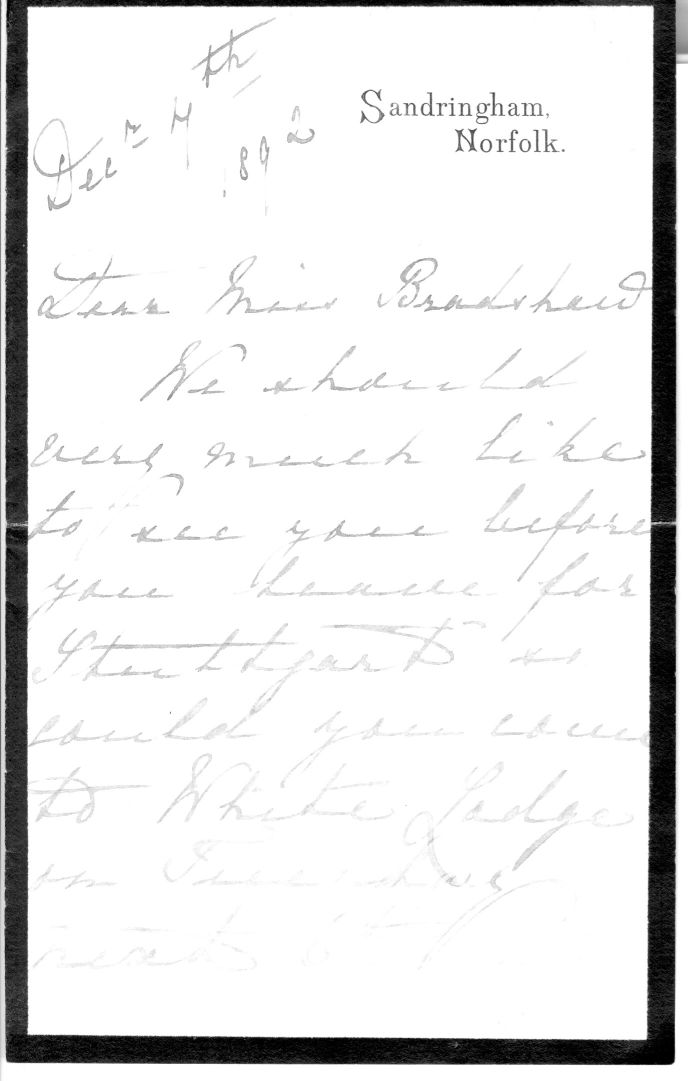 Sandringham,
Norfolk.
Decr 7th
1892
Dear Miss Bradshaw
We should
very much like
to see you before
you leave for
Stuttgart so
could you come
to White Lodge
on Tuesday
next